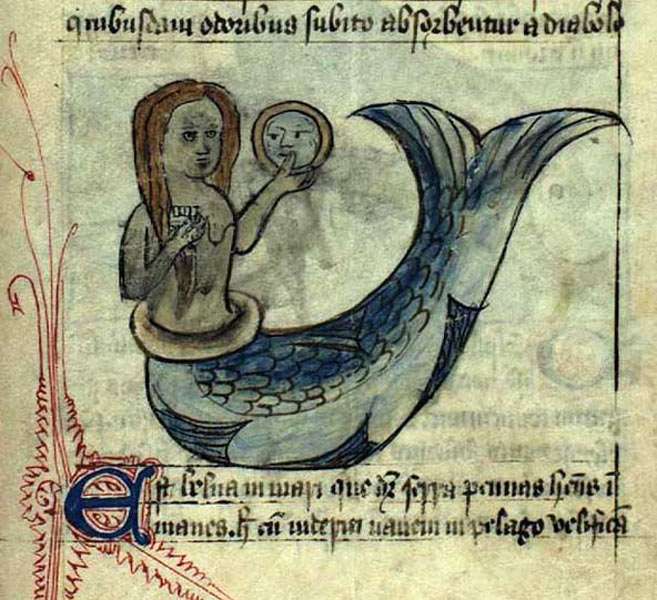 quibusdam odoribus subito absorbentur a diabolo
Est belua in mari que dr̄ serra pennas hn̄s ī
manes. h̄ cū nauem in pelago velificā